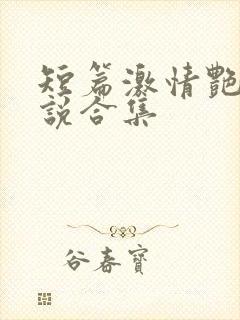 短篇激情艷
說合集
谷春寶